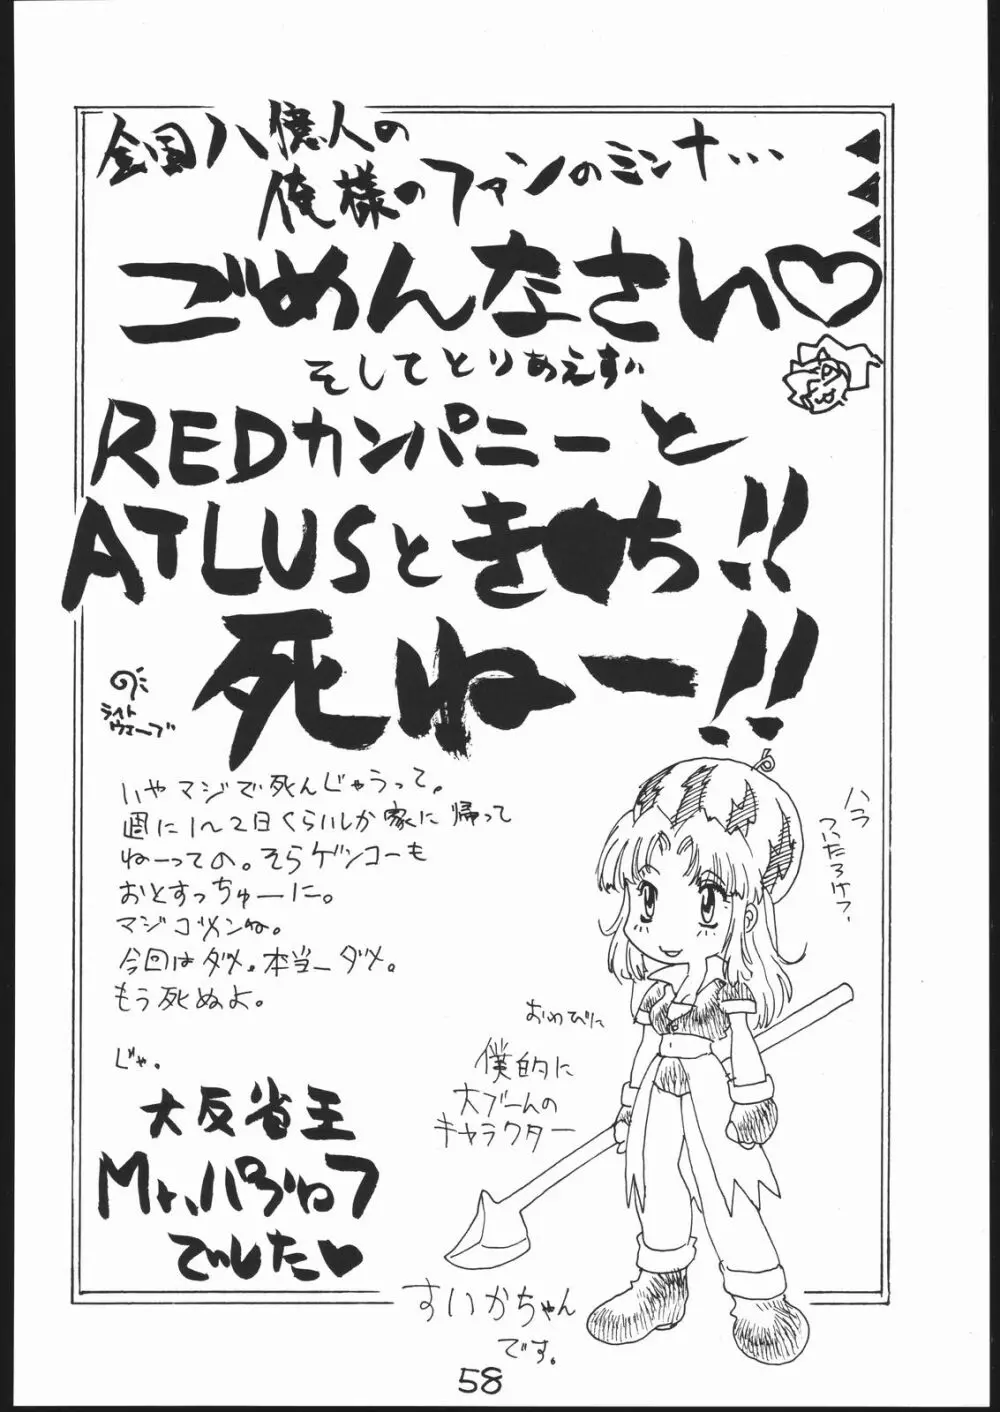 全国八億人の
俺様のファンのミンナ…
ごめんなさい♡
そしてとりあえず
REDカンパニーと
ATLUSとき●ち!!
死ねー!!
ライト
ウェーブ
いやマジで死んじゃうって。
週に1〜2日くらいしか家に帰って
ねーっての。そらゲンコーも
おとすっちゅーに。
マジゴメンね。
今回はダメ。本当ーダメ。
もう死ぬよ。
じゃ。
大反省王
Mr.パジネフ
でした♥
ハラ
へったろけっ
おわびに
僕的に
大ブームの
キャラクター
すいかちゃん
です。
58